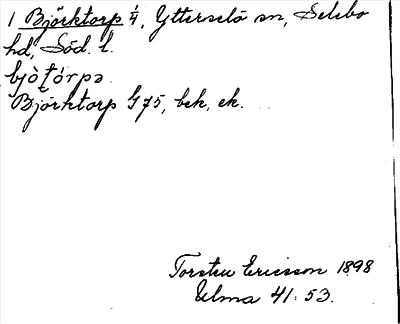 1 Björktorp 1/4, Ytterselö sn, Selebo
hd, Söd. l.
bjò̀ţórpə
Björktorp G 75, bek, ek.
Torsten Ericsson 1898
Ulma 41:53.